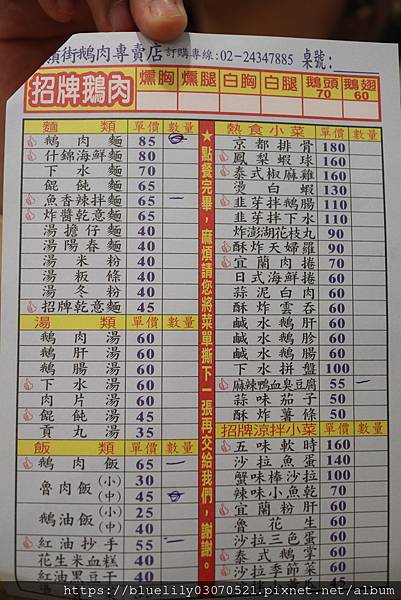 嶺街鵝肉專賣店 訂購專線:02-24347885 桌號:
招牌鵝肉 燻胸 燻腿 白胸 白腿 鵝頭70 鵝翅60
麵類 單價 數量
鵝肉麵 85
什錦海鮮麵 80
下水麵 70
餛飩麵 65
魚香辣拌麵 65 一
炸醬乾意麵 65
湯擔仔麵 40
湯陽春麵 40
湯米粉 40
湯粄條 40
湯冬粉 40
招牌乾意麵 45
湯類 單價 數量
鵝肉湯 60
鵝肝湯 60
鵝腸湯 60
下水湯 60
肉片湯 60
餛飩湯 45
貢丸湯 35
飯類 單價 數量
鵝肉飯 65 一
魯肉飯 (小) 30
(中) 45
鵝油飯 (小) 25
(中) 40
紅油抄手 55 一
花生米血糕 40
紅油黑豆干 40
★點餐完畢,麻煩請您將菜單撕下一張再交給我們,謝謝。
熱食小菜 單價 數量
京都排骨 180
鳳梨蝦球 160
泰式椒麻雞 160
燙白蝦 130
韭芽拌鵝腸 110
韭芽拌下水 110
炸澎湖花枝丸 90
酥炸天婦羅 90
宜蘭肉捲 70
日式海鮮捲 60
蒜泥白肉 60
酥炸雲吞 60
鹹水鵝肝 60
鹹水鵝胗 60
鹹水鵝腸 60
下水拼盤 100
麻辣鴨血臭豆腐 55 一
蒜味茄子 50
酥炸薯條 50
招牌涼拌小菜 單價 數量
五味軟時 160
沙拉魚蛋 140
蟹味棒沙拉 100
辣味小魚乾 70
宜蘭粉肝 60
魯花生 60
沙拉三色蛋 60
泰式鵝掌 60
沙拉季節菜 60
https://bluelily03070521.pixnet.net/album